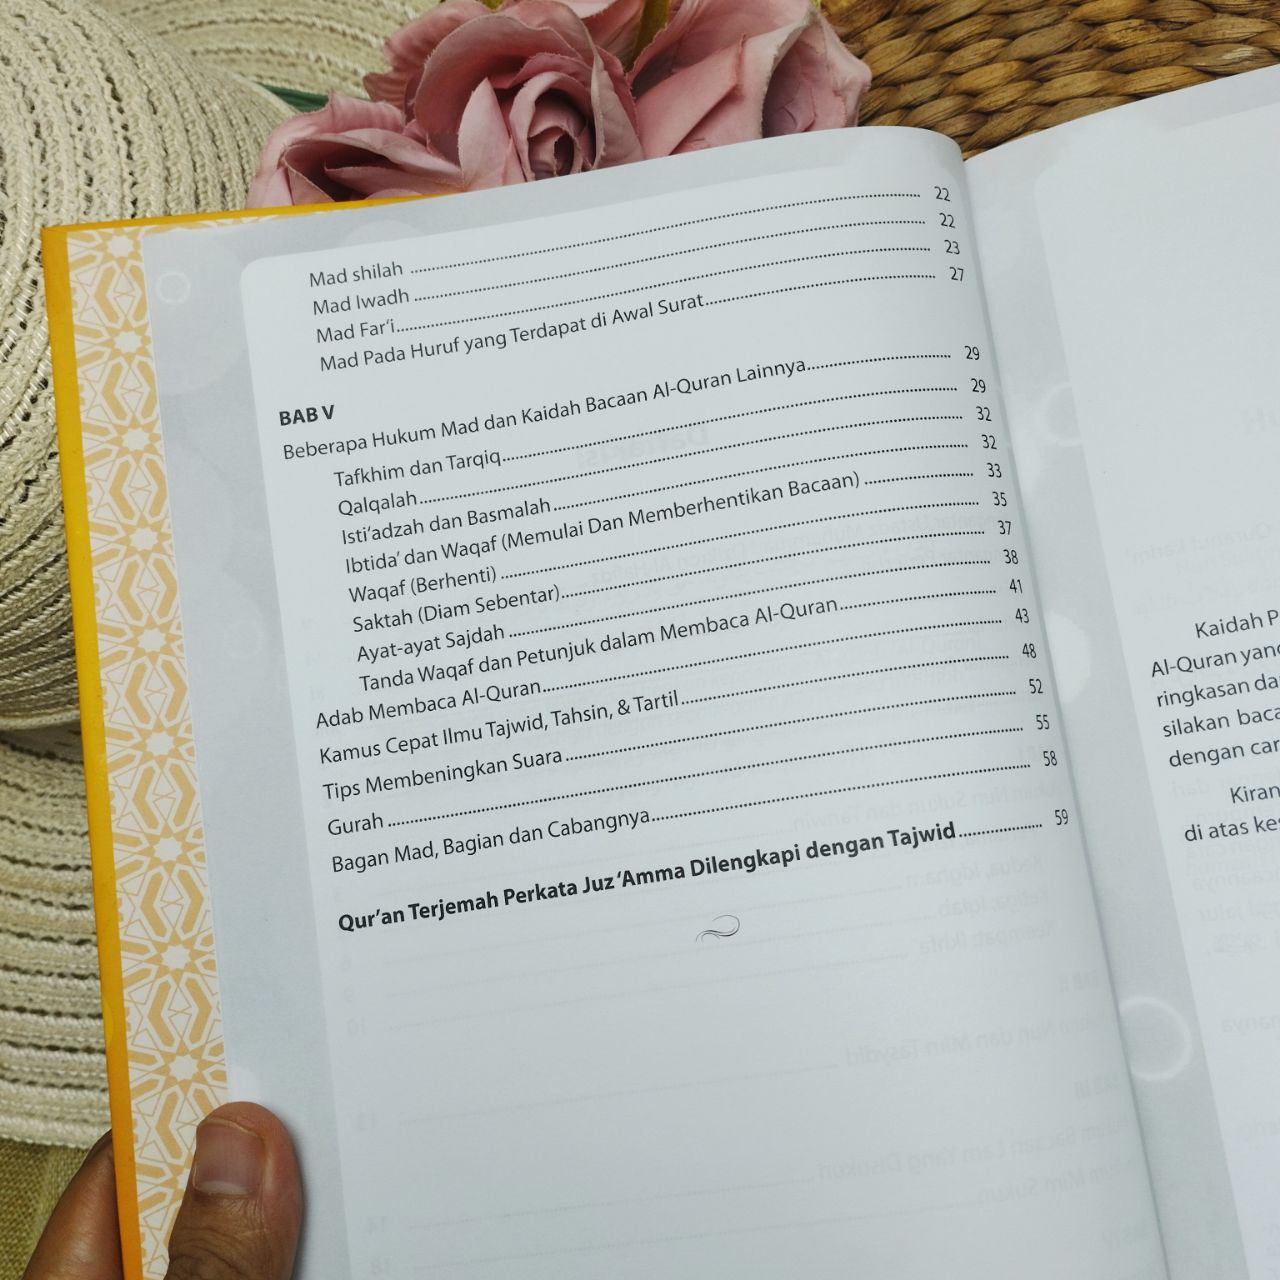 Mad shilah ........ 22
Mad Iwadh ........ 22
Mad Far‘i........ 23
Mad Pada Huruf yang Terdapat di Awal Surat........ 27
BAB V
Beberapa Hukum Mad dan Kaidah Bacaan Al-Quran Lainnya........ 29
Tafkhim dan Tarqiq........ 29
Qalqalah........ 32
Isti‘adzah dan Basmalah........ 32
Ibtida’ dan Waqaf (Memulai Dan Memberhentikan Bacaan) ........ 33
Waqaf (Berhenti) ........ 35
Saktah (Diam Sebentar)........ 37
Ayat-ayat Sajdah ........ 38
Tanda Waqaf dan Petunjuk dalam Membaca Al-Quran........ 41
Adab Membaca Al-Quran........ 43
Kamus Cepat Ilmu Tajwid, Tahsin, & Tartil........ 48
Tips Membeningkan Suara ........ 52
Gurah ........ 55
Bagan Mad, Bagian dan Cabangnya........ 58
Qur’an Terjemah Perkata Juz ‘Amma Dilengkapi dengan Tajwid........ 59
Kaidah P
Al-Quran yang
ringkasan da
silakan baca
dengan car
Kiran
di atas kes